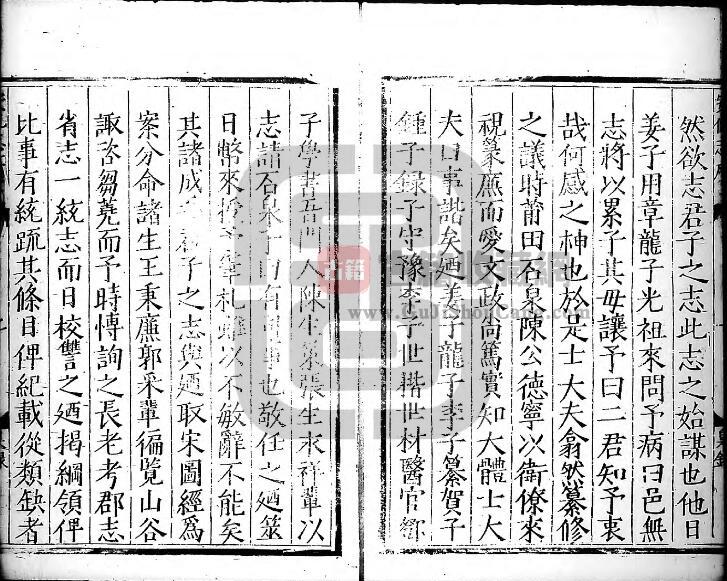 然欲志君子之志此志之始謀也他日
姜子用章龍子光祖來問予病曰邑無
志將以累子其毋讓予曰二君知予衷
哉何感之神也於是士大夫翕然纂修
之議時莆田石泉陳公德寧以衛僚來
視篆廉而愛文政尚篤實知大體士大
夫曰事諧矣廼姜子龍子李子纂賀子
鍾子錄子守豫李子世揩世材醫官
子學書吾門人陳生策張生求祥輩以
志請石泉子有事也敬任之廼筮
日幣來授予筆札以不敏辭不能矣
其諸成君子之志與廼取宋圖經爲
案分命諸生王秉廉郭采輩徧覧山谷
諏咨芻蕘而予時愽詢之長老考郡志
省志一統志而日校讐之廼掲綱領俾
比事有統疏其條目俾紀載從類缺者
www.GujiShopCang.com
古籍